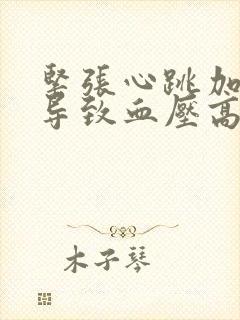 緊張心跳加
导致血壓高
木子琴